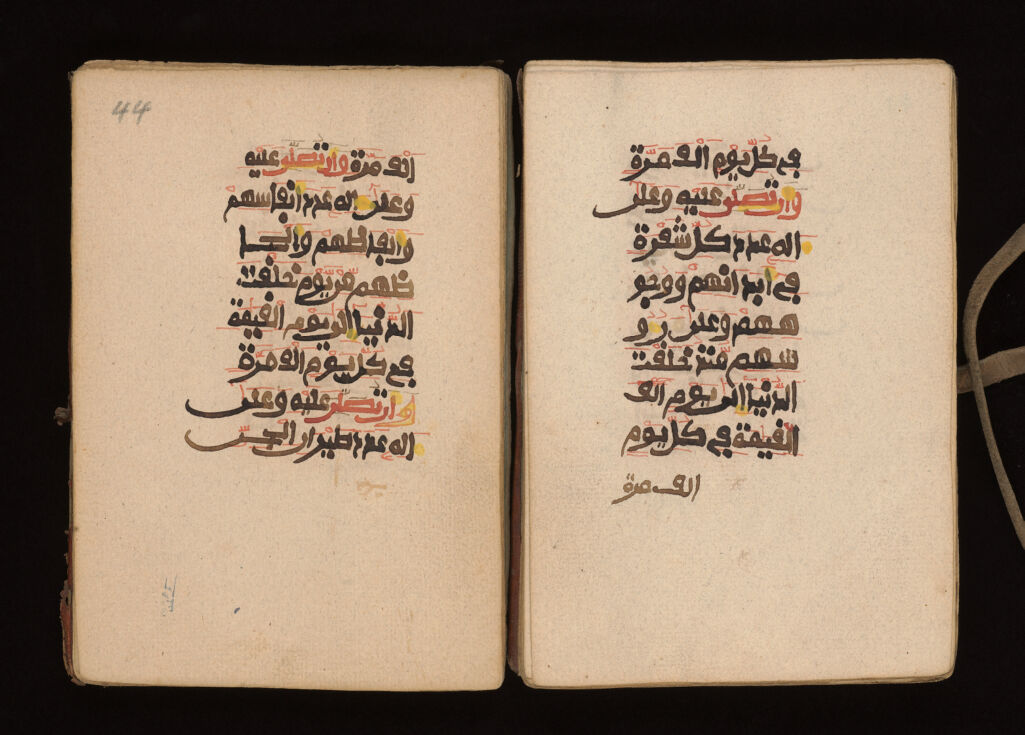 في كل يوم الف مرة
وان تصلي عليه وعلى
اله عدد كل شعرة
في ابدانهم ووجو
ههم وعلى رو
سهم منذ خلقت
الدنيا الى يوم الف
القيمة في كل يوم
الف مرة
44
الف مرة وان تصلي عليه
وعلى اله عدد انفاسهم
والفاظهم والحا
ظهم من يوم خلقت
الدنيا الى يوم القيمة
في كل يوم الف مرة
وان تصلي عليه وعلى
اله عدد طيران الجن